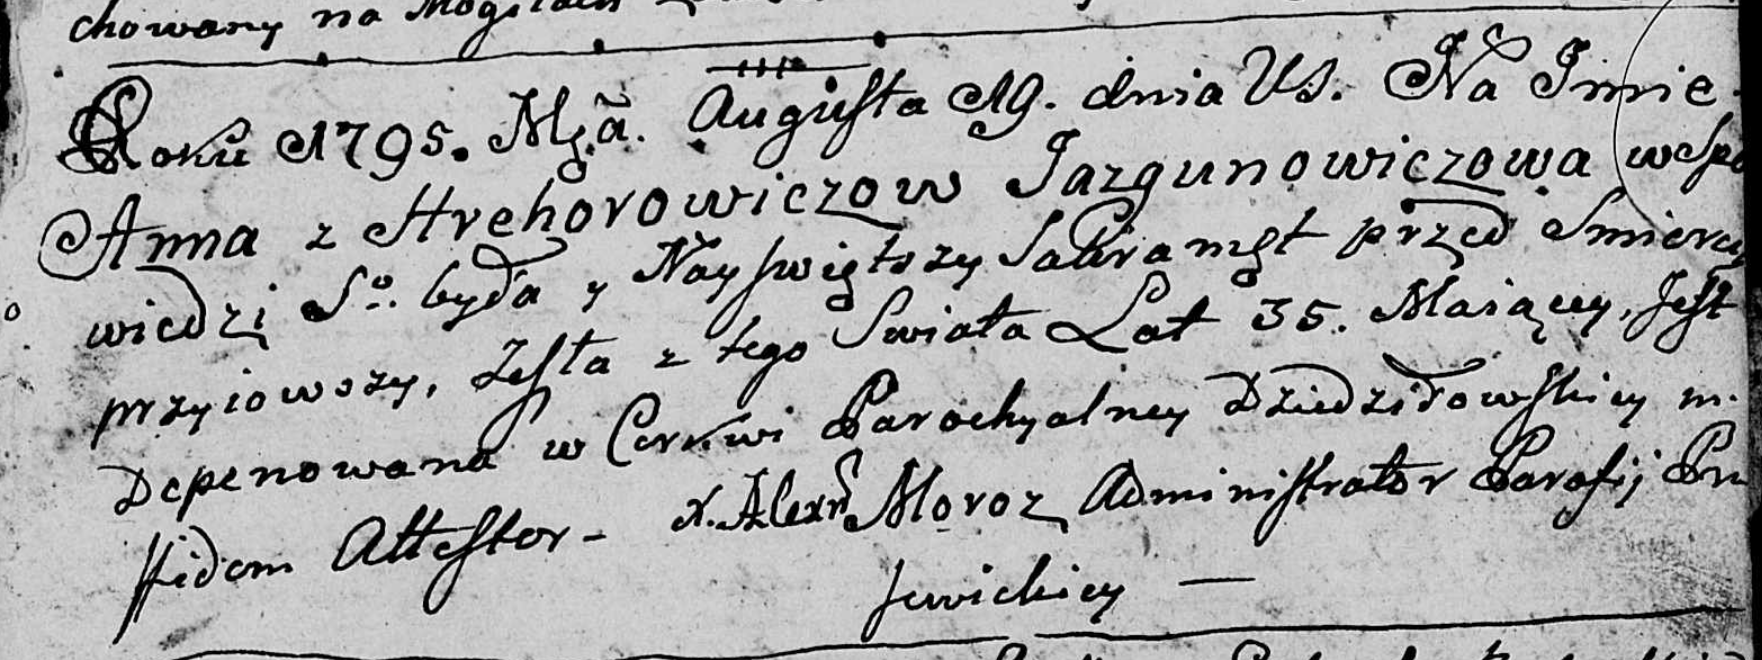 chowany na Mogiłach
Roku 1795. Mca. Augusta 19. dnia VS. Na Imie
Anna z Hrehorowiczow Jazgunowiczowa w Spo
wiedzi So. była y Nayswiętszy Sakramęt przed Smiercią
przyiowszy, Zeszła z tego Swiata Lat 35. Maiącey, Jest
Depenowana w Cerkwi Parochyalney Dziedziłowskiey m.
Fidem Attestor - X. Alexr Moroz Administrator Parafij Pru
sewickiey —